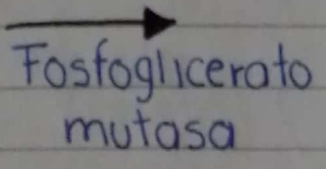 Fosfoglicerato
mutasa